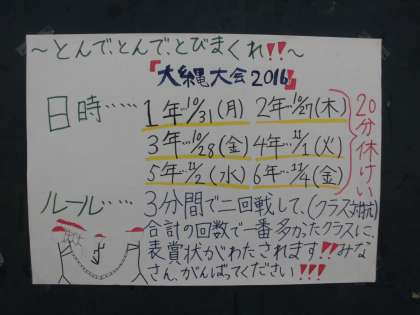 ～とんで、とんで、とびまくれ!!～
『大縄大会2016』
日時‥‥‥
1年…10/31(月) 2年…10/27(木)
3年…10/28(金) 4年…11/1(火)
5年…11/2(水) 6年…11/4(金)
20分休けい
ルール‥‥‥3分間で二回戦して、(クラス対抗)
合計の回数で一番多かったクラスに、
表賞状がわたされます!!みな
さん、がんばってください!!!